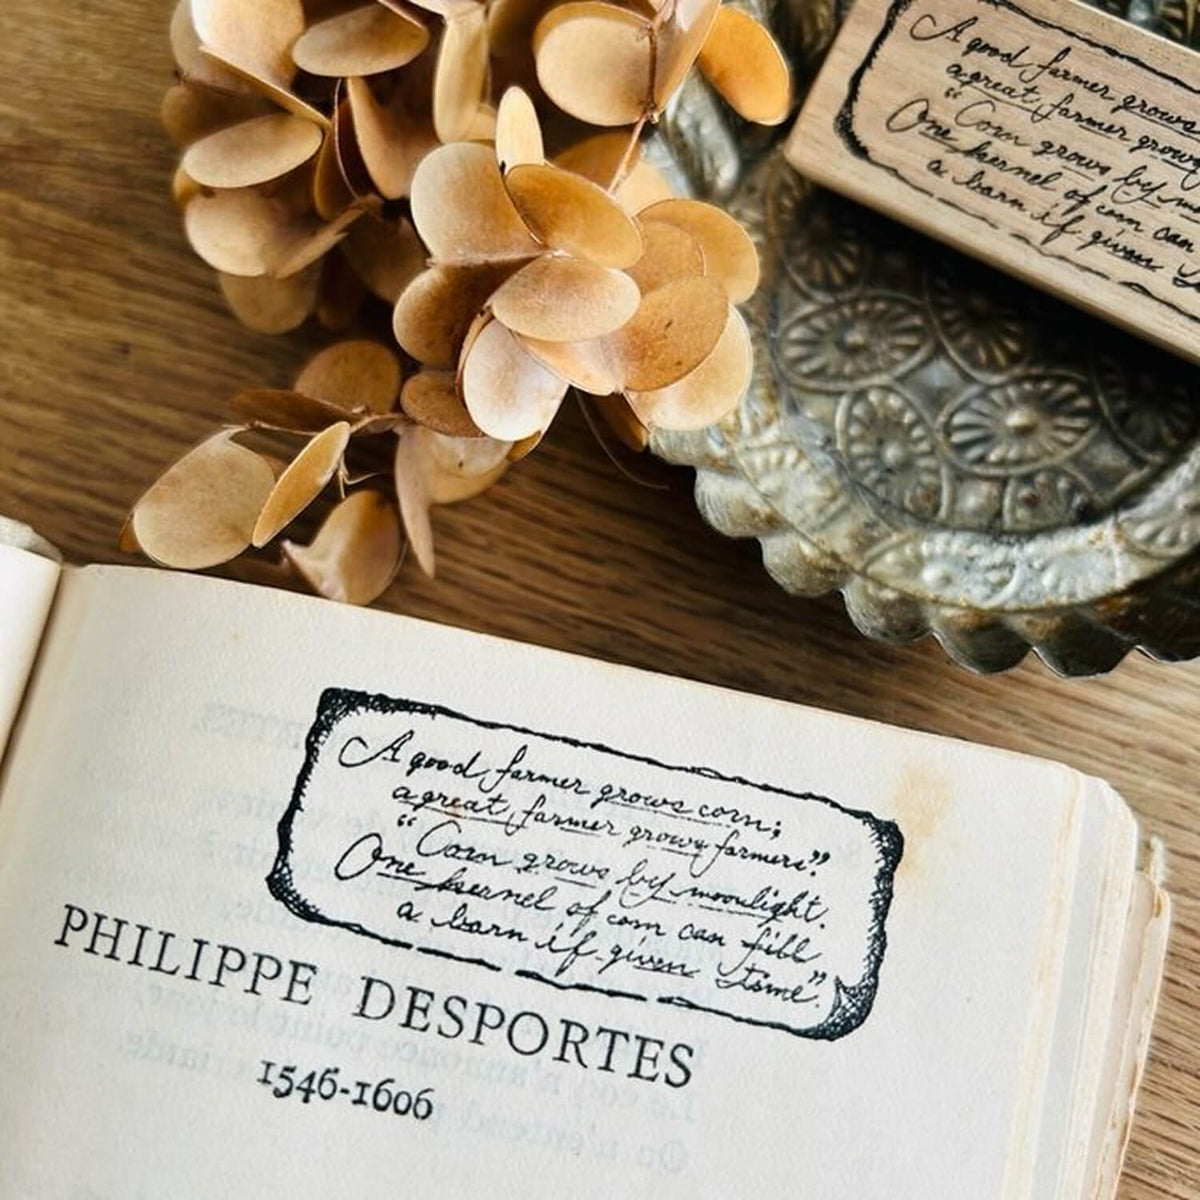 A good farmer grows
a great farmer grow
“Corn grows by m
One kernel of corn can
a barn if given
A good farmer grows corn;
a great farmer grows farmers.”
“Corn grows by moonlight.
One kernel of corn can fill
a barn if given time”.
PHILIPPE DESPORTES
1546-1606